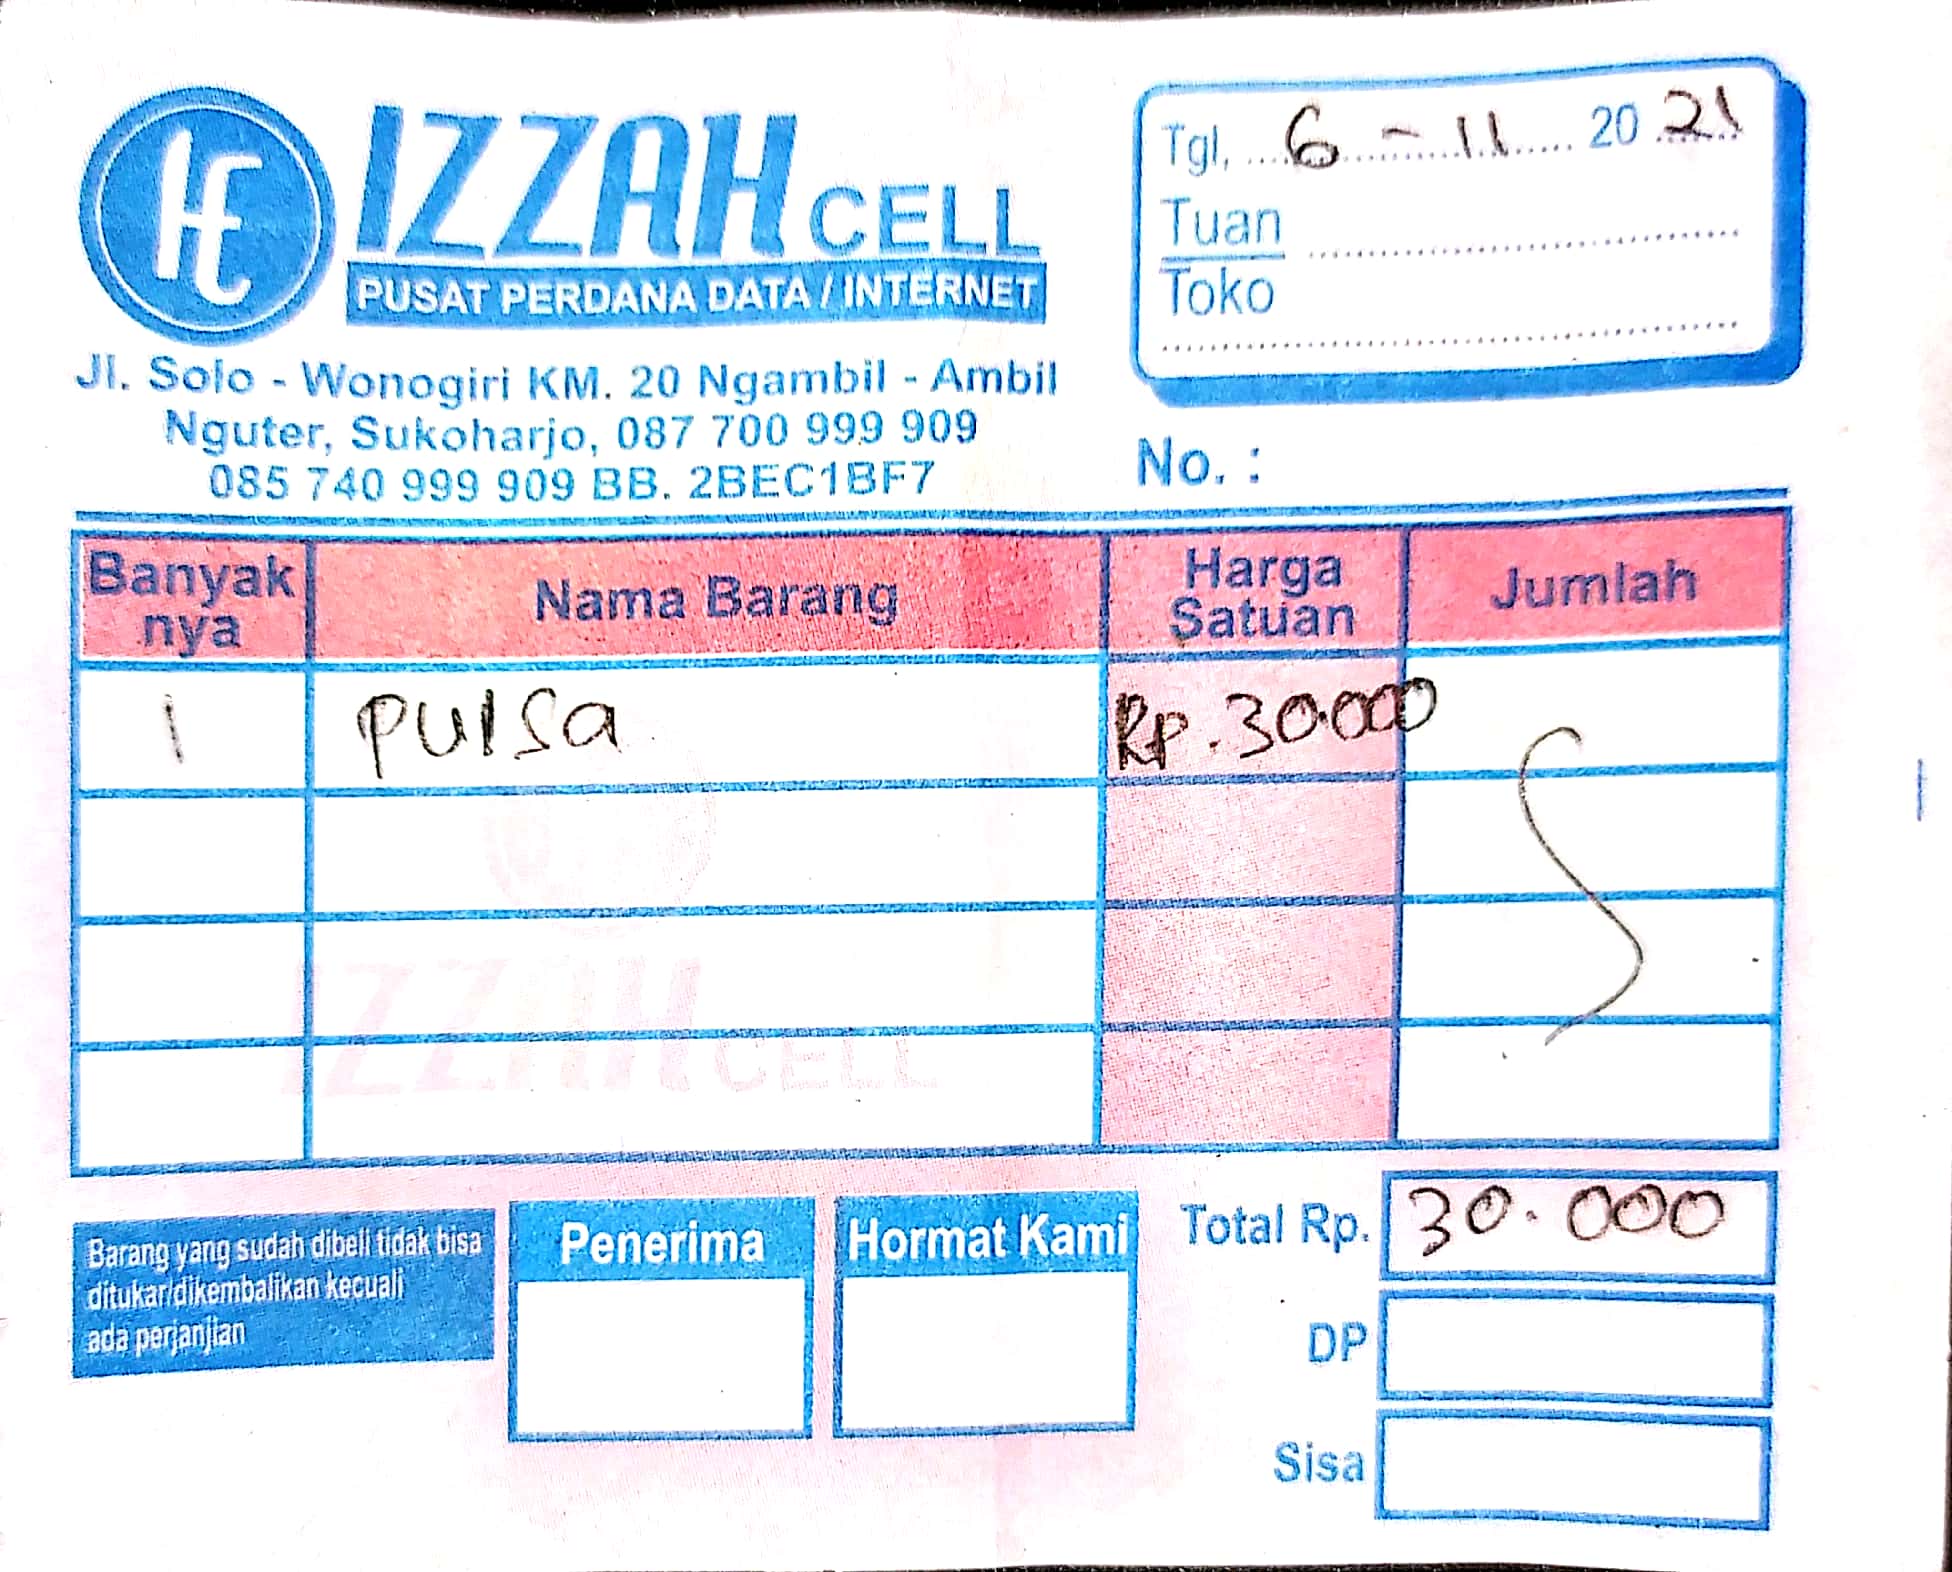 IZZAH CELL
PUSAT PERDANA DATA / INTERNET
Jl. Solo - Wonogiri KM. 20 Ngambil - Ambil
Nguter, Sukoharjo, 087 700 999 909
085 740 999 909 BB. 2BEC1BF7
Tgl, 6 - 11 20 21
Tuan
Toko
No. :
Banyak nya Nama Barang Harga Satuan Jumlah
1 pulsa Rp. 30.000
IZZAH CELL
Barang yang sudah dibeli tidak bisa
ditukar/dikembalikan kecuali
ada perjanjian
Penerima
Hormat Kami
Total Rp. 30.000
DP
Sisa